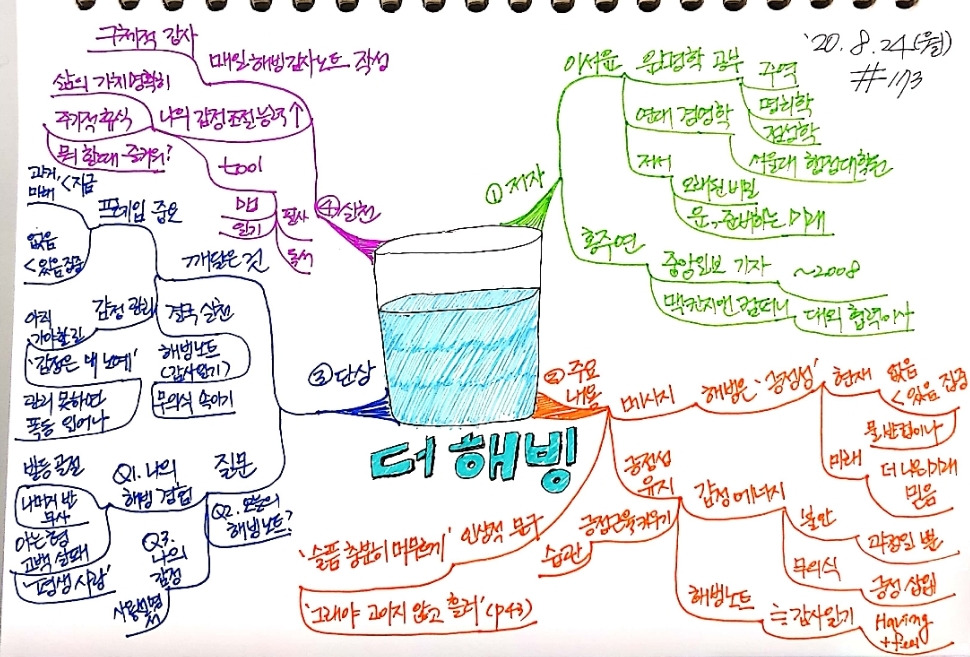 '20. 8. 24 (월)
#173
더 해빙
① 저자
이서윤
운명학 공부
주역
명리학
점성학
연대 경영학
서울대 행정대학원
저서
오래된 비밀
운 준비하는 미래
홍주연
중앙일보 기자
~2008
맥킨지앤컴퍼니
대외 협력이사
② 주요
내용
메시지
해빙은 '긍정성'
현재
없음
< 있음 집중
물 반컵이나
미래
더 나은 미래
믿음
긍정성
유지
감정 에너지
불안
과정일 뿐
무의식
긍정 삽입
해빙노트
≒ 감사일기
Having
+ feel
긍정근육 키우기
습관
인상적 문구
'슬픔 충분히 머무르게'
'그래야 고이지 않고 흘러' (p43)
③ 단상
깨달은 것
프레임 중요
과거,
미래 < 지금
없음
< 있음 집중
감정 관리
아직
'감정은 내 노예'
관리 못하면
폭동 일어나
결국 실천
해빙노트
(감사일기)
무의식 속이기
질문
Q1. 나의
해빙 경험
발등 골절
나머지 반
무사
아는 형
고백 실패
'평생 사랑'
Q2. 오늘의
해빙노트?
Q3.
나의
감정
사용설명
④ 실천
매일 해빙감사노트 작성
구체적 감사
나의 감정조절능력 ↑
삶의 가치 명확히
주기적 휴식
뭐 할때 즐거워?
tool
일기
필사
독서